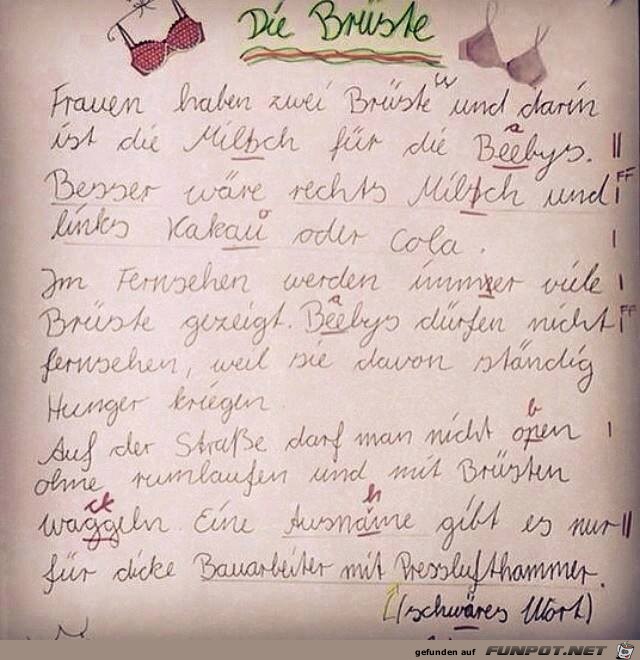 Die Brüste
Frauen haben zwei Brüste und darin
ist die Miltsch für die Beebys. a ||
Besser wäre rechts Miltsch und FF
links Kakau oder Cola. o |
Im Fernsehen werden immer viele |
Brüste gezeigt. Beebys dürfen nicht a FF
fernsehen, weil sie davon ständig
Hunger kriegen
Auf der Straße darf man nicht open b |
ohne rumlaufen und mit Brüsten
waggeln. Eine Ausnäme gibt es nur ck h ||
für dicke Bauarbeiter mit Presslufthammer.
(schwäres Wort)
gefunden auf FUNPOT.NET